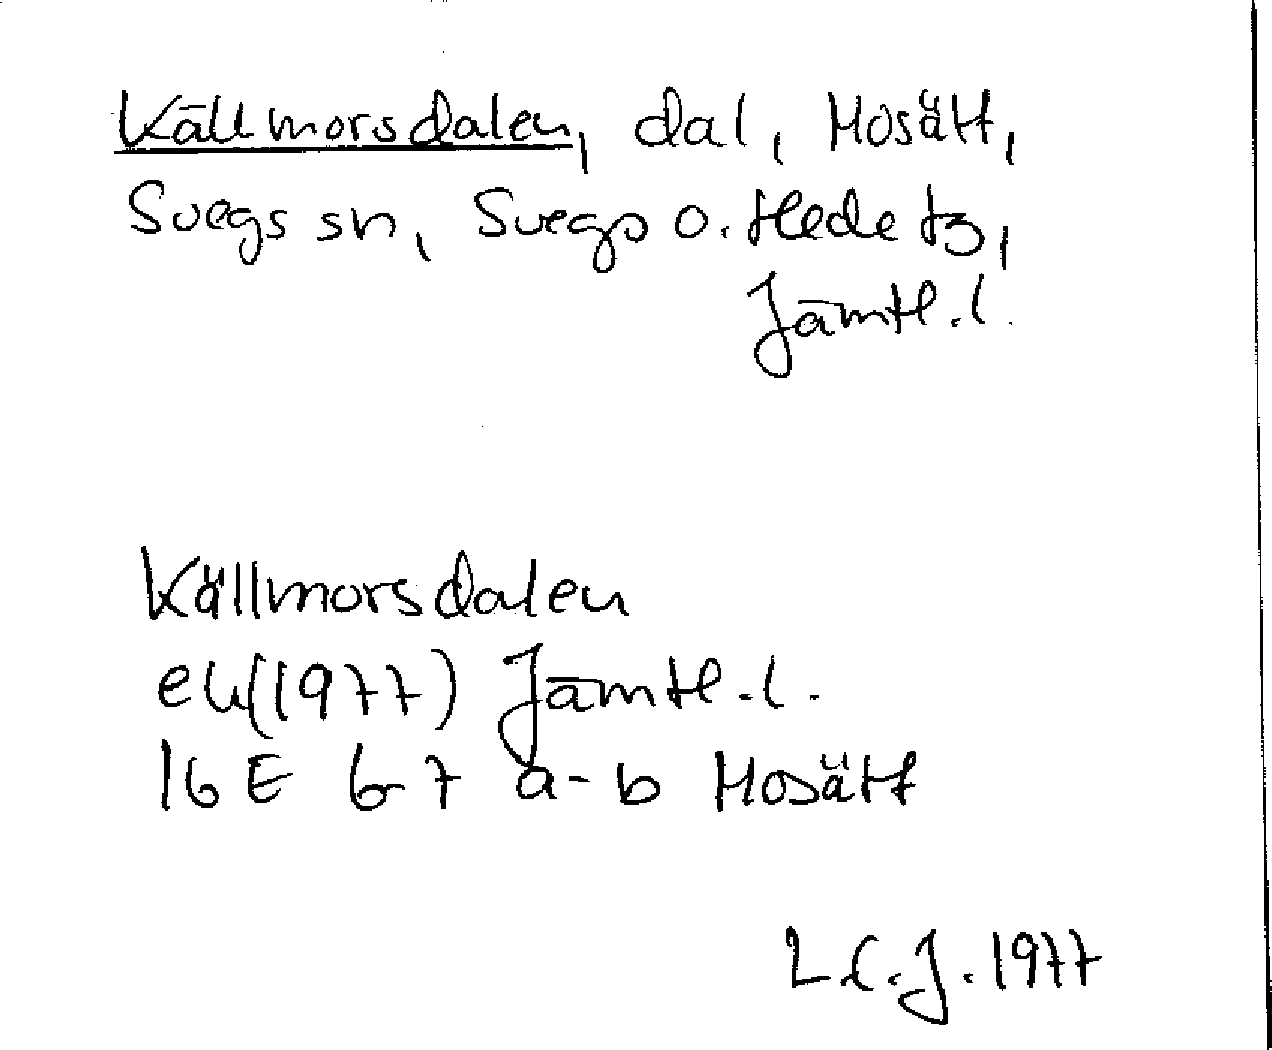 Källmorsdalen, dal, Mosätt,
Svegs sn, Svegs o. Hede tg,
Jämtl. l.
Källmorsdalen
ek (1977) Jämtl. l.
16 E 6-7 a-b Mosätt
L.C.J. 1977